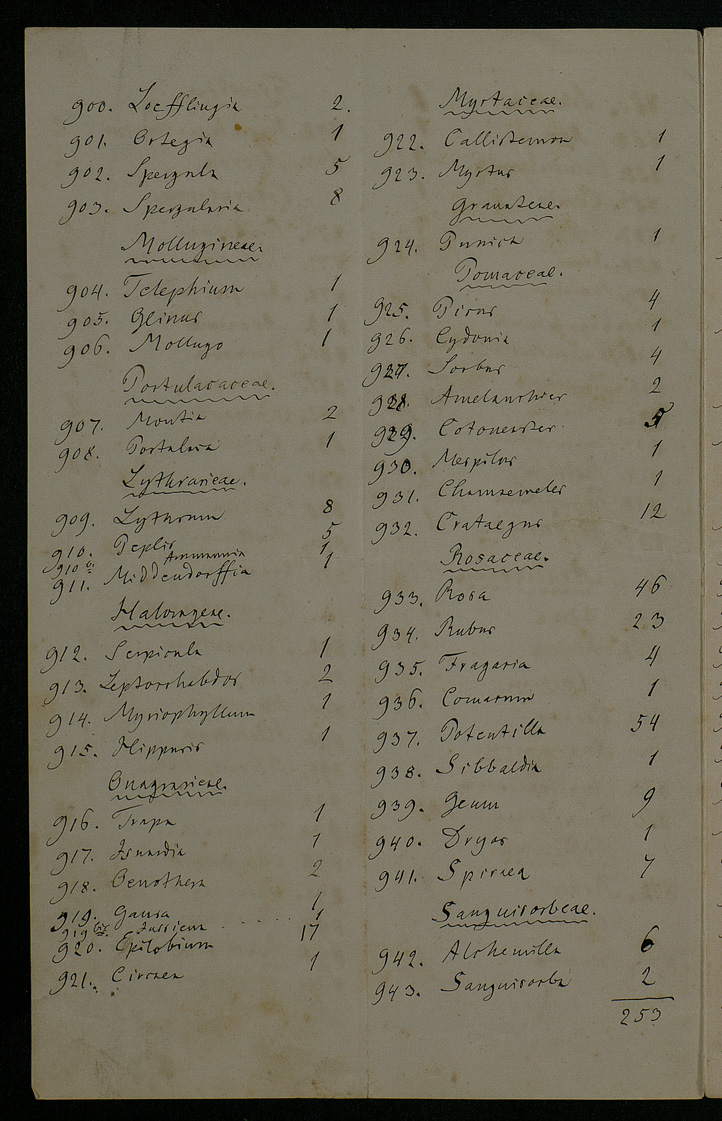 900. Loefflingia 2.
901. Ortegia 1
902. Spergula 5
903. Spergularia 8
Mollugineae.
904. Telephium 1
905. Glinus 1
906. Mollugo 1
Portulacaceae.
907. Montia 2
908. Portulaca 1
Lythrarieae.
909. Lythrum 8
910. Peplis 5
910 b. Ammannia 1
911. Middendorffia 1
Halorageae.
912. Serpicula 1
913. Leptorrhabdos 2
914. Myriophyllum 1
915. Hippuris 1
Onagrarieae.
916. Trapa 1
917. Isnardia 1
918. Oenothera 2
919. Gaura 1
919 bis. Jussieua ..... 1
920. Epilobium 17
921. Circaea 1
Myrtaceae.
922. Callistemon 1
923. Myrtus 1
Granateae.
924. Punica 1
Pomaceae.
925. Pirus 4
926. Cydonia 1
927. Sorbus 4
928. Amelanchier 2
929. Cotoneaster 5
930. Mespilus 1
931. Chamaemeles 1
932. Crataegus 12
Rosaceae.
933. Rosa 46
934. Rubus 23
935. Fragaria 4
936. Comarum 1
937. Potentilla 54
938. Sibbaldia 1
939. Geum 9
940. Dryas 1
941. Spiraea 7
Sanguisorbeae.
942. Alchemilla 6
943. Sanguisorba 2
253